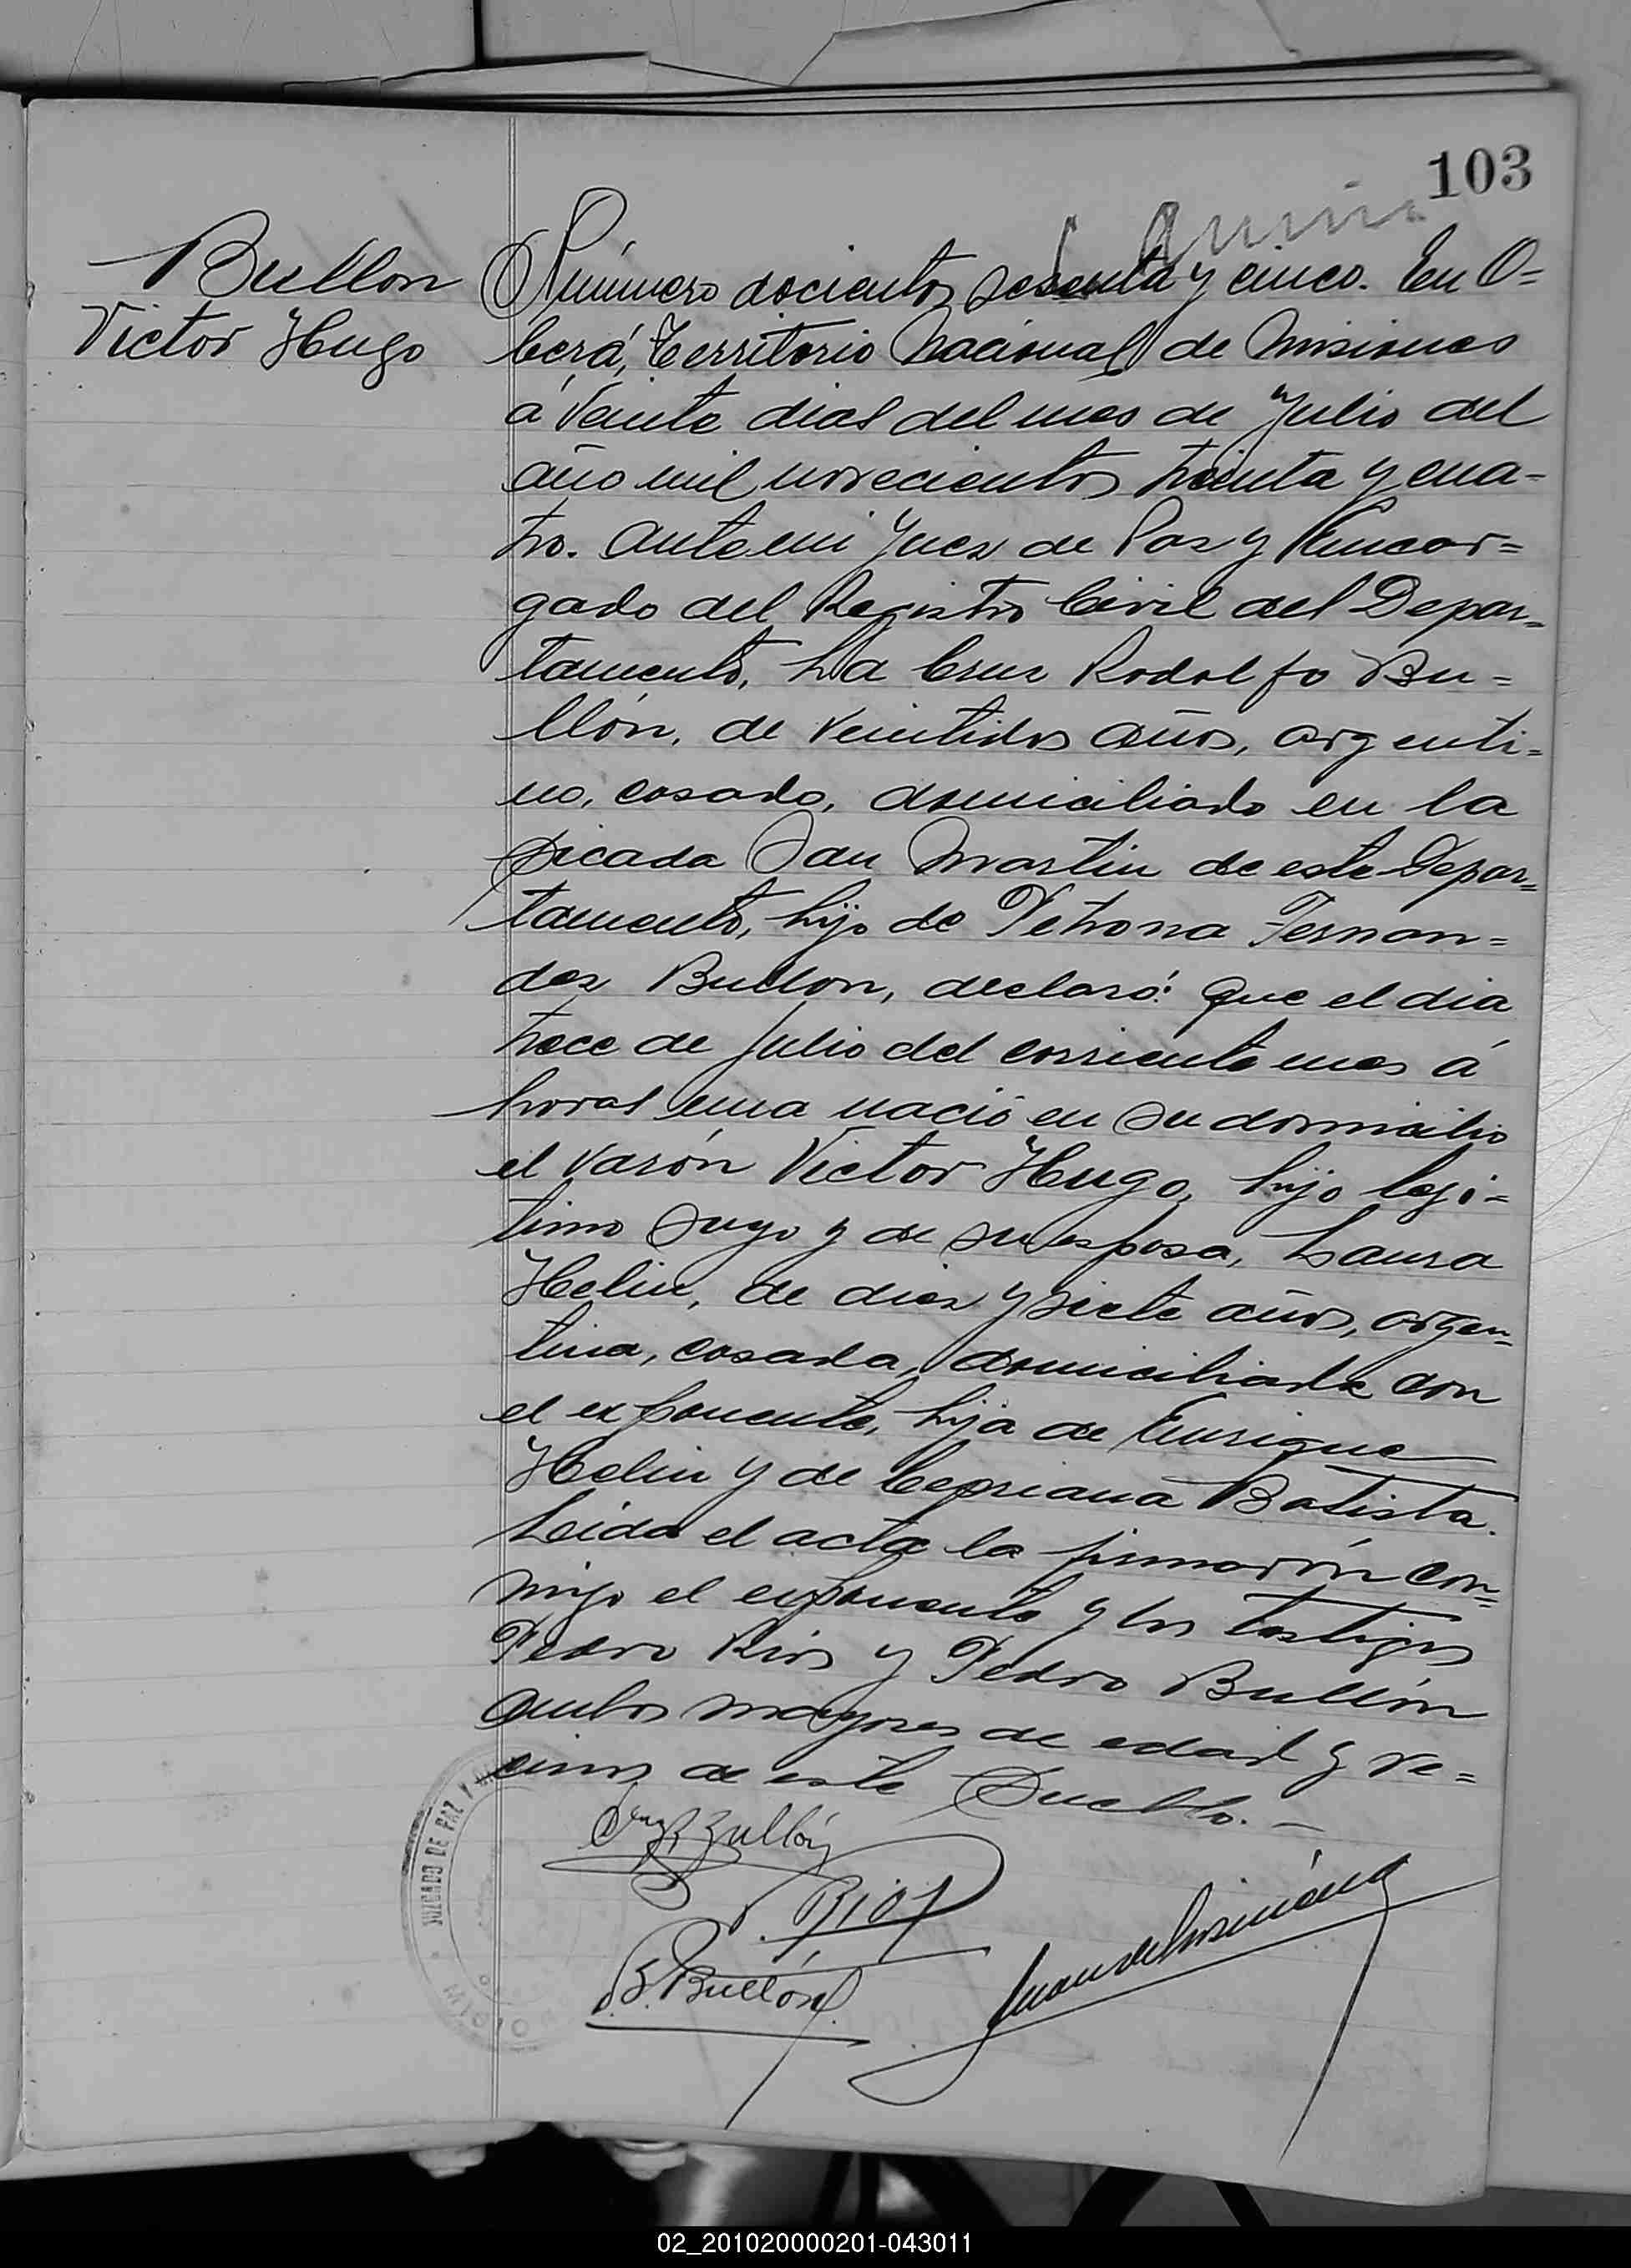 103
Bullon
Victor Hugo
Número docientos sesenta y cinco. En O=
berá, Territorio Nacional de Misiones
á veinte dias del mes de Julio del
año mil novecientos treinta y cua-
tro. Ante mi Juez de Paz y Encar=
gado del Registro Civil del Depar=
tamento, La Cruz Rodolfo Bu=
llón, de veintidos años, argenti=
no, casado, domiciliado en la
picada San Martin de este Depar=
tamento, hijo de Petrona Fernan=
dez Bullon, declaró: Que el dia
trece de Julio del corriente mes á
horas una nació en su domicilio
el varón Victor Hugo, hijo legi=
timo suyo y de su esposa, Laura
Helin, de diez y siete años, argen=
tina, casada, domiciliada con
el exponente, hija de Enrique
Helin y de Cepriana Batista.
Leida el acta la firmarón con=
migo el exponente y los testigos
Pedro Rios y Pedro Bullón
ambos mayores de edad y ve=
cinos de este Pueblo.—
Bullón
P. Rios
Bullón
JUZGADO DE PAZ Y
02_201020000201-043011